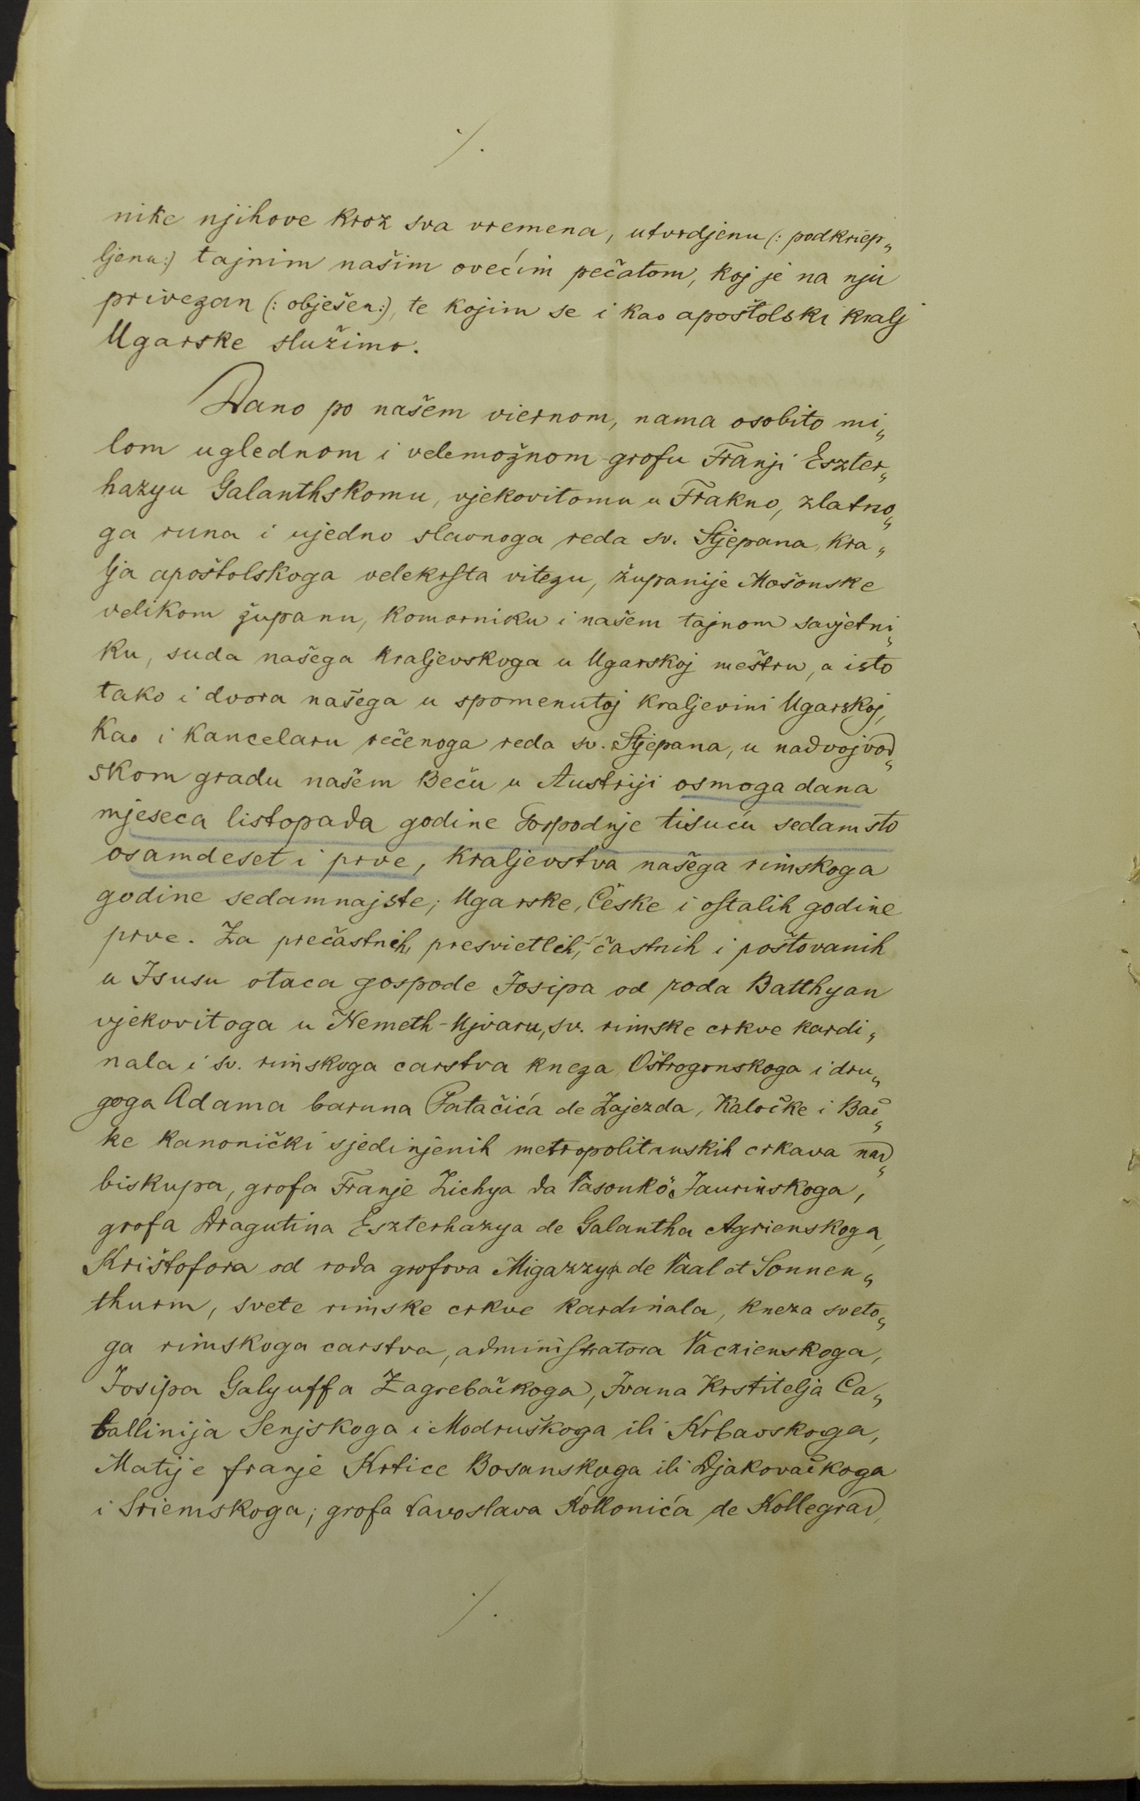 ·/.
nike njihove kroz sva vremena, utvrdjenu (: podkriep„
ljenu:) tajnim našim ovećim pečatom, koj je na nju
privezan (: obješen:), te kojim se i kao apoštolski kralj
Ugarske služimo.
Dano po našem viernom, nama osobito mi„
lom uglednom i velemožnom grofu Franji Eszter„
hazyu Galanthskomu, vjekovitomu u Frakno, zlatno„
ga runa i ujedno slavnoga reda sv. Stjepana, kra„
lja apoštolskoga velekrsta vitezu, županije Mošonske
velikom županu, komorniku i našem tajnom savjetni„
ku, suda našega kraljevskoga u Ugarskoj meštru, a isto
tako i dvora našega u spomenutoj kraljevini Ugarskoj,
kao i kancelaru rečenoga reda sv. Stjepana, u nadvojvod„
skom gradu našem Beču u Austriji osmoga dana
mjeseca listopada godine Gospodnje tisuću sedamsto
osamdeset i prve, kraljevstva našega rimskoga
godine sedamnajste; Ugarske, Češke i ostalih godine
prve. Za prečastnih, presvietlih, častnih i poštovanih
u Isusu otaca gospode Josipa od roda Batthyan
vjekovitoga u Nemeth-Ujvaru, sv. rimske crkve kardi„
nala i sv. rimskoga carstva kneza Ostrogonskoga i dru„
goga Adama baruna Patačića de Zajezda, Kaločke i Bač„
ke kanonički sjedinjenih metropolitanskih crkava nad„
biskupa, grofa Franje Zichya da Vasonkö Jaurinskoga,
grofa Dragutina Eszterhazya de Galantha Agrienskoga,
Krištofora od roda grofova Migazzya de Vaal et Sonnen„
thurm, svete rimske crkve kardinala, kneza sveto„
ga rimskoga carstva, administratora Vaczienskoga,
Josipa Galyuffa Zagrebačkoga, Ivana Krstitelja Ca„
ballinija Senjskoga i Modruškoga ili Krbavskoga,
Matije franje Krtice Bosanskoga ili Djakovačkoga
i Sriemskoga; grofa Lavoslava Kollonića de Kollegrad,
·/.